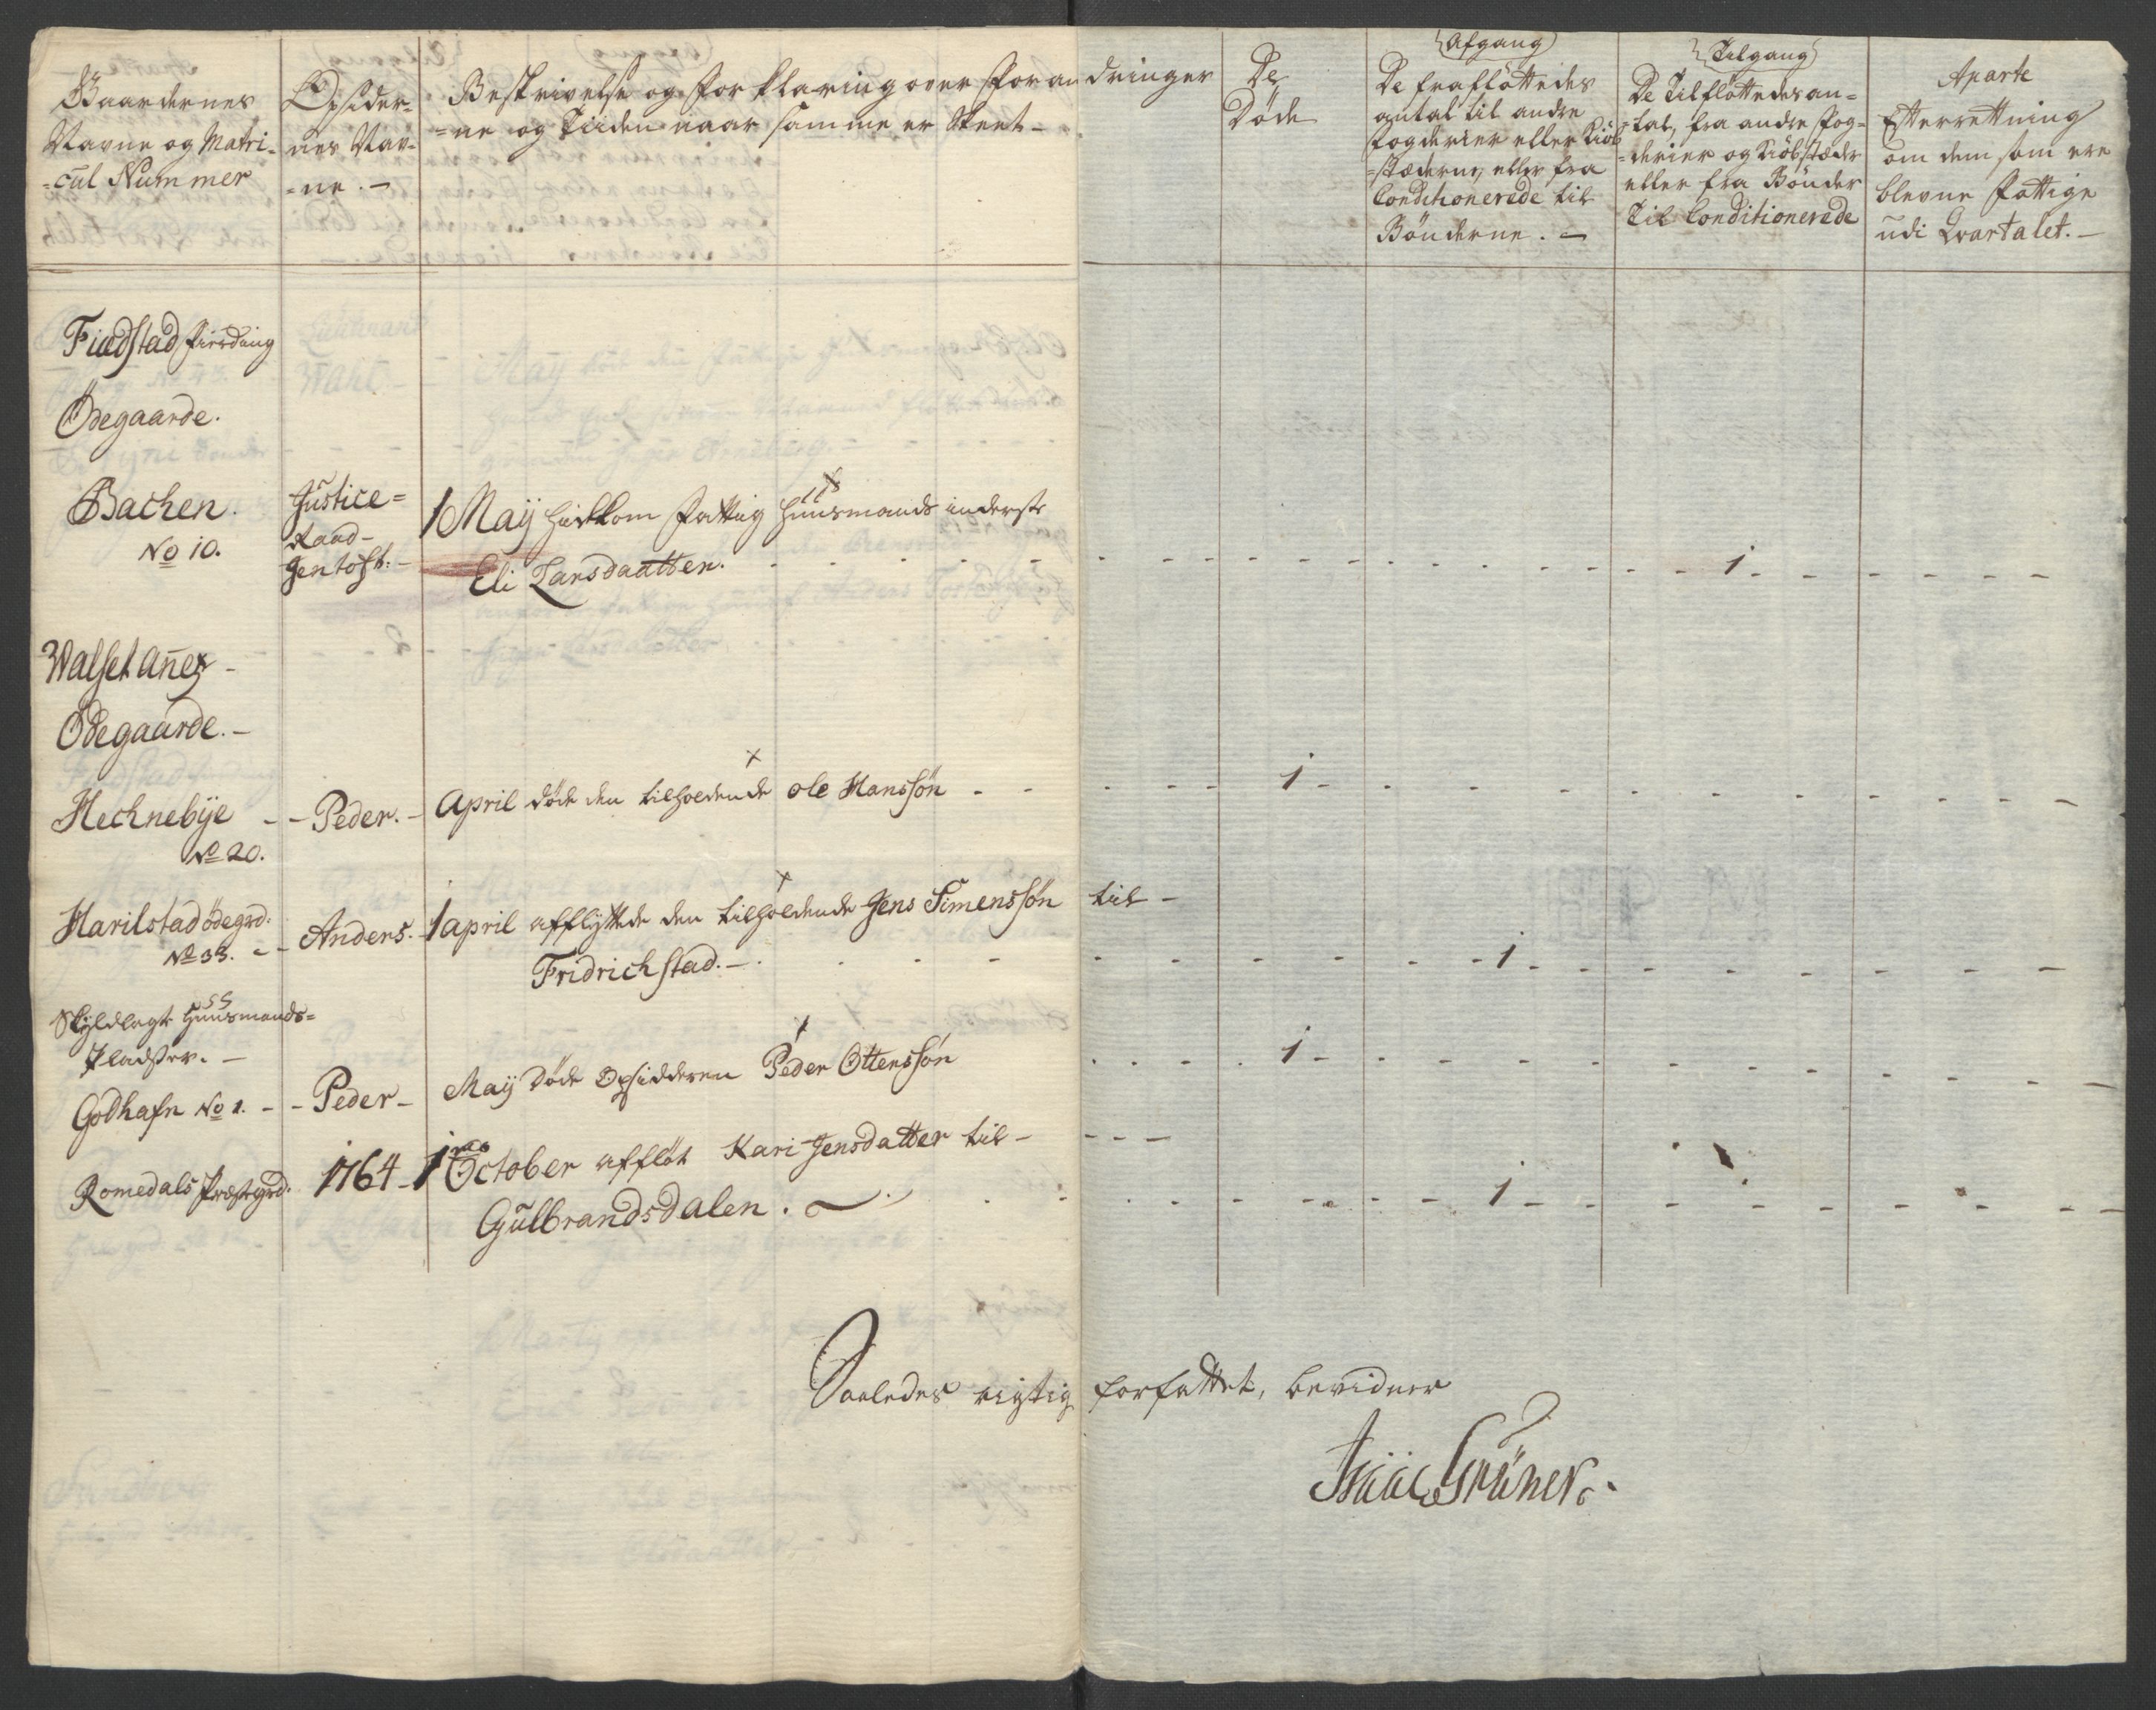 Gaardernes
Navne og Matri-
-cul Nummer
Opsider-
nes Nav-
-ne. -
Beskrivelse og Forklaring over Forandringer
-ne og Tiiden naar samme er skeet -
De
Døde
Afgang
De frafløttedes
antal til andre
Fogderier eller Kiøb-
-stæderne, eller fra
Conditionerede til
Bønderne. -
Tilgang
De Tilfløttedes an-
-tal, fra andre Fog-
-derier og Kiøbstæder
eller fra Bønder
Til Conditionerede
Aparte
Efterrettning
om dem som ere
blevne Fattige
udi Qvartalet. -
Fierding
Ödegaarde.
Bachen.
No 10.
Justice-
Raad
Gentoft. -
1 Maij hidkom Fattig Huusmands inderste
Eli Larsdaatter. - - - - - - 1 - - - -
Walset Añex -
Ödegaarde. -
Hechnebÿe - - Peder. - April døde den tilholdende ole Hanssøn - - - 1 - - - -
No 20.
Harilstad ödegrd.
No 33. - - Anders. - 1 april afflyttede den tilholdende Jens Simenssøn til -
Fridrichstad. - - - - - 1 - - - -
Skyldlagte Huusmands-
Pladser. -
Godhafn No 1. - - Peder - Maij Døde Opsidderen Peder Ottenssøn - - - 1 - - - -
Romedals Præstegrd. 1764 - 1 October affløt Kari Jensdatter til - - - -
Gulbrandsdalen. - - - - 1 - - - -
Saaledes rigtig forfattet, bevidner
Isaac Grüner.